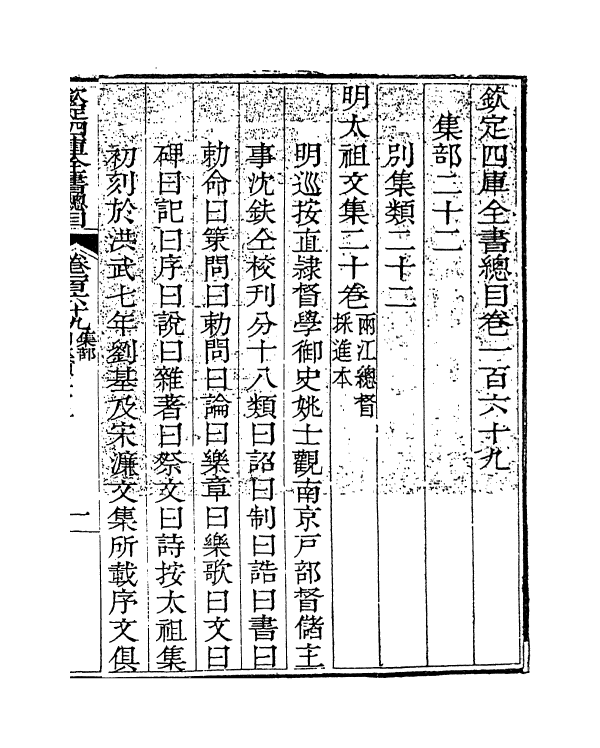 欽定四庫全書總目卷一百六十九
集部二十二
別集類二十二
明太祖文集二十卷兩江總督
採進本
明巡按直隷督學御史姚士觀南京戸部督儲主
事沈鈇仝校刊分十八類曰詔曰制曰誥曰書曰
勅命曰策問曰勅問曰論曰樂章曰樂歌曰文曰
碑曰記曰序曰說曰雜著曰祭文曰詩按太祖集
初刻於洪武七年劉基及宋濂文集所載序文俱
欽定四庫全書總目
卷一百六十九
集部
一